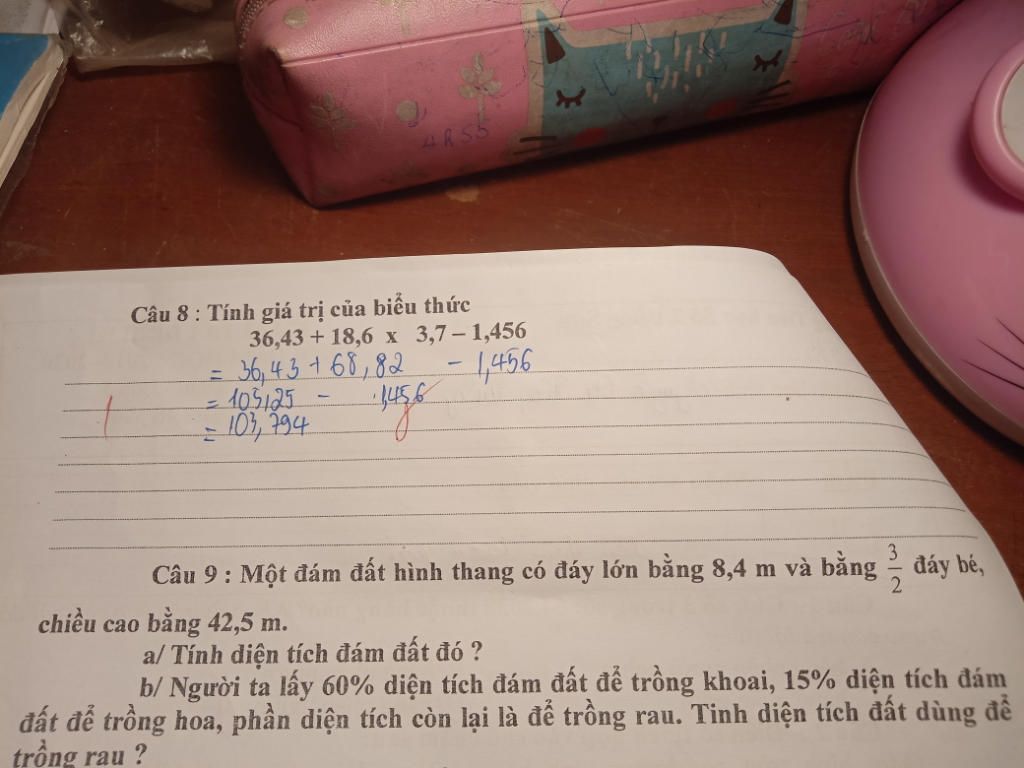 4R55
Câu 8 : Tính giá trị của biểu thức
36,43 + 18,6 x 3,7 – 1,456
= 36,43 + 68,82 - 1,456
= 105,25 - 1,456
= 103,794
Câu 9 : Một đám đất hình thang có đáy lớn bằng 8,4 m và bằng 3/2 đáy bé,
chiều cao bằng 42,5 m.
a/ Tính diện tích đám đất đó ?
b/ Người ta lấy 60% diện tích đám đất để trồng khoai, 15% diện tích đám
đất để trồng hoa, phần diện tích còn lại là để trồng rau. Tinh diện tích đất dùng để
trồng rau ?